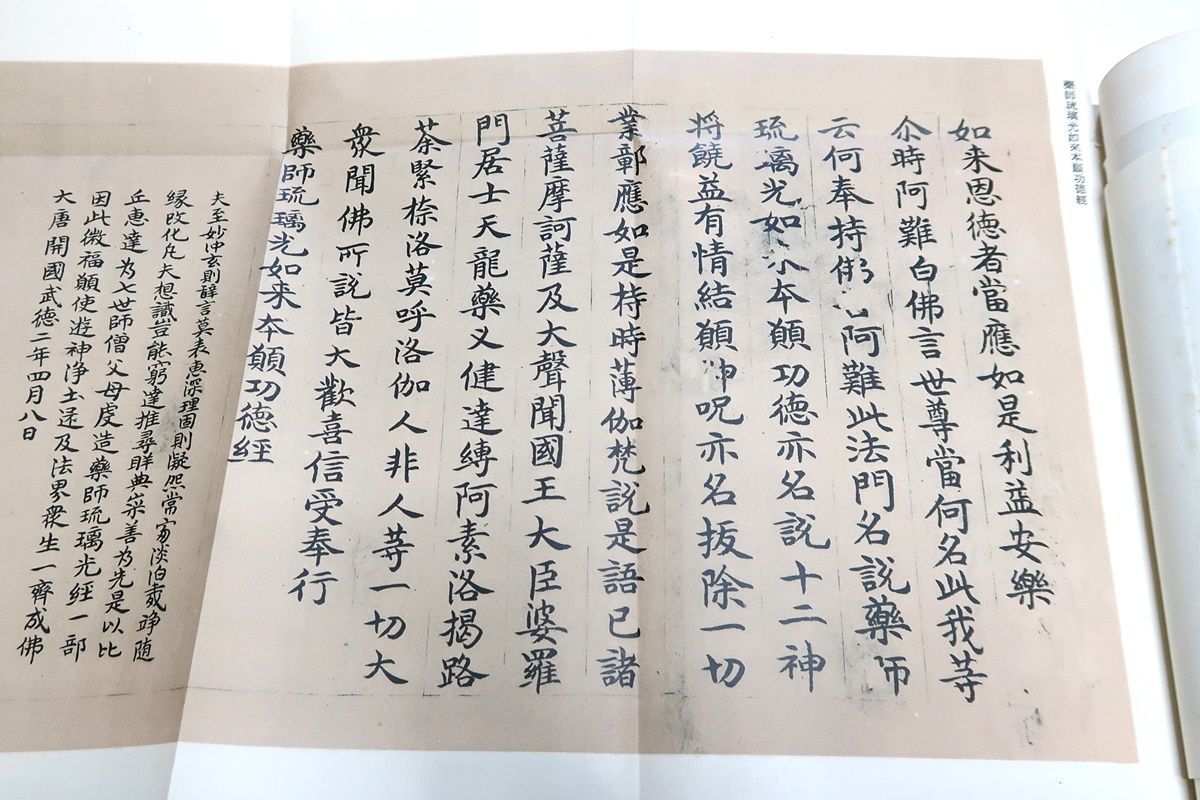 藥師琉璃光如來本願功德經
如来恩德者當應如是利益安樂
尒時阿難白佛言世尊當何名此我等
云何奉持佛 阿難此法門名說藥師
琉璃光如来本願功德亦名說十二神
将饒益有情結願神呪亦名拔除一切
業鄣應如是持時薄伽梵說是語已諸
菩薩摩訶薩及大聲聞國王大臣婆羅
門居士天龍藥义健達縛阿素洛揭路
荼緊捺洛莫呼洛伽人非人等一切大
衆聞佛所說皆大歡喜信受奉行
藥師琉璃光如来本願功德經
夫至妙冲玄則辞言莫表惠深理固則凝然常 淡泊 竫随
緣改化凡夫想識豈能窮達推尋群典崇善為先是以比
丘惠達為七世師僧父母虔造藥師琉璃光經一部
因此微福願使遊神淨土遝及法界衆生一齊成佛
大唐開國武德二年四月八日